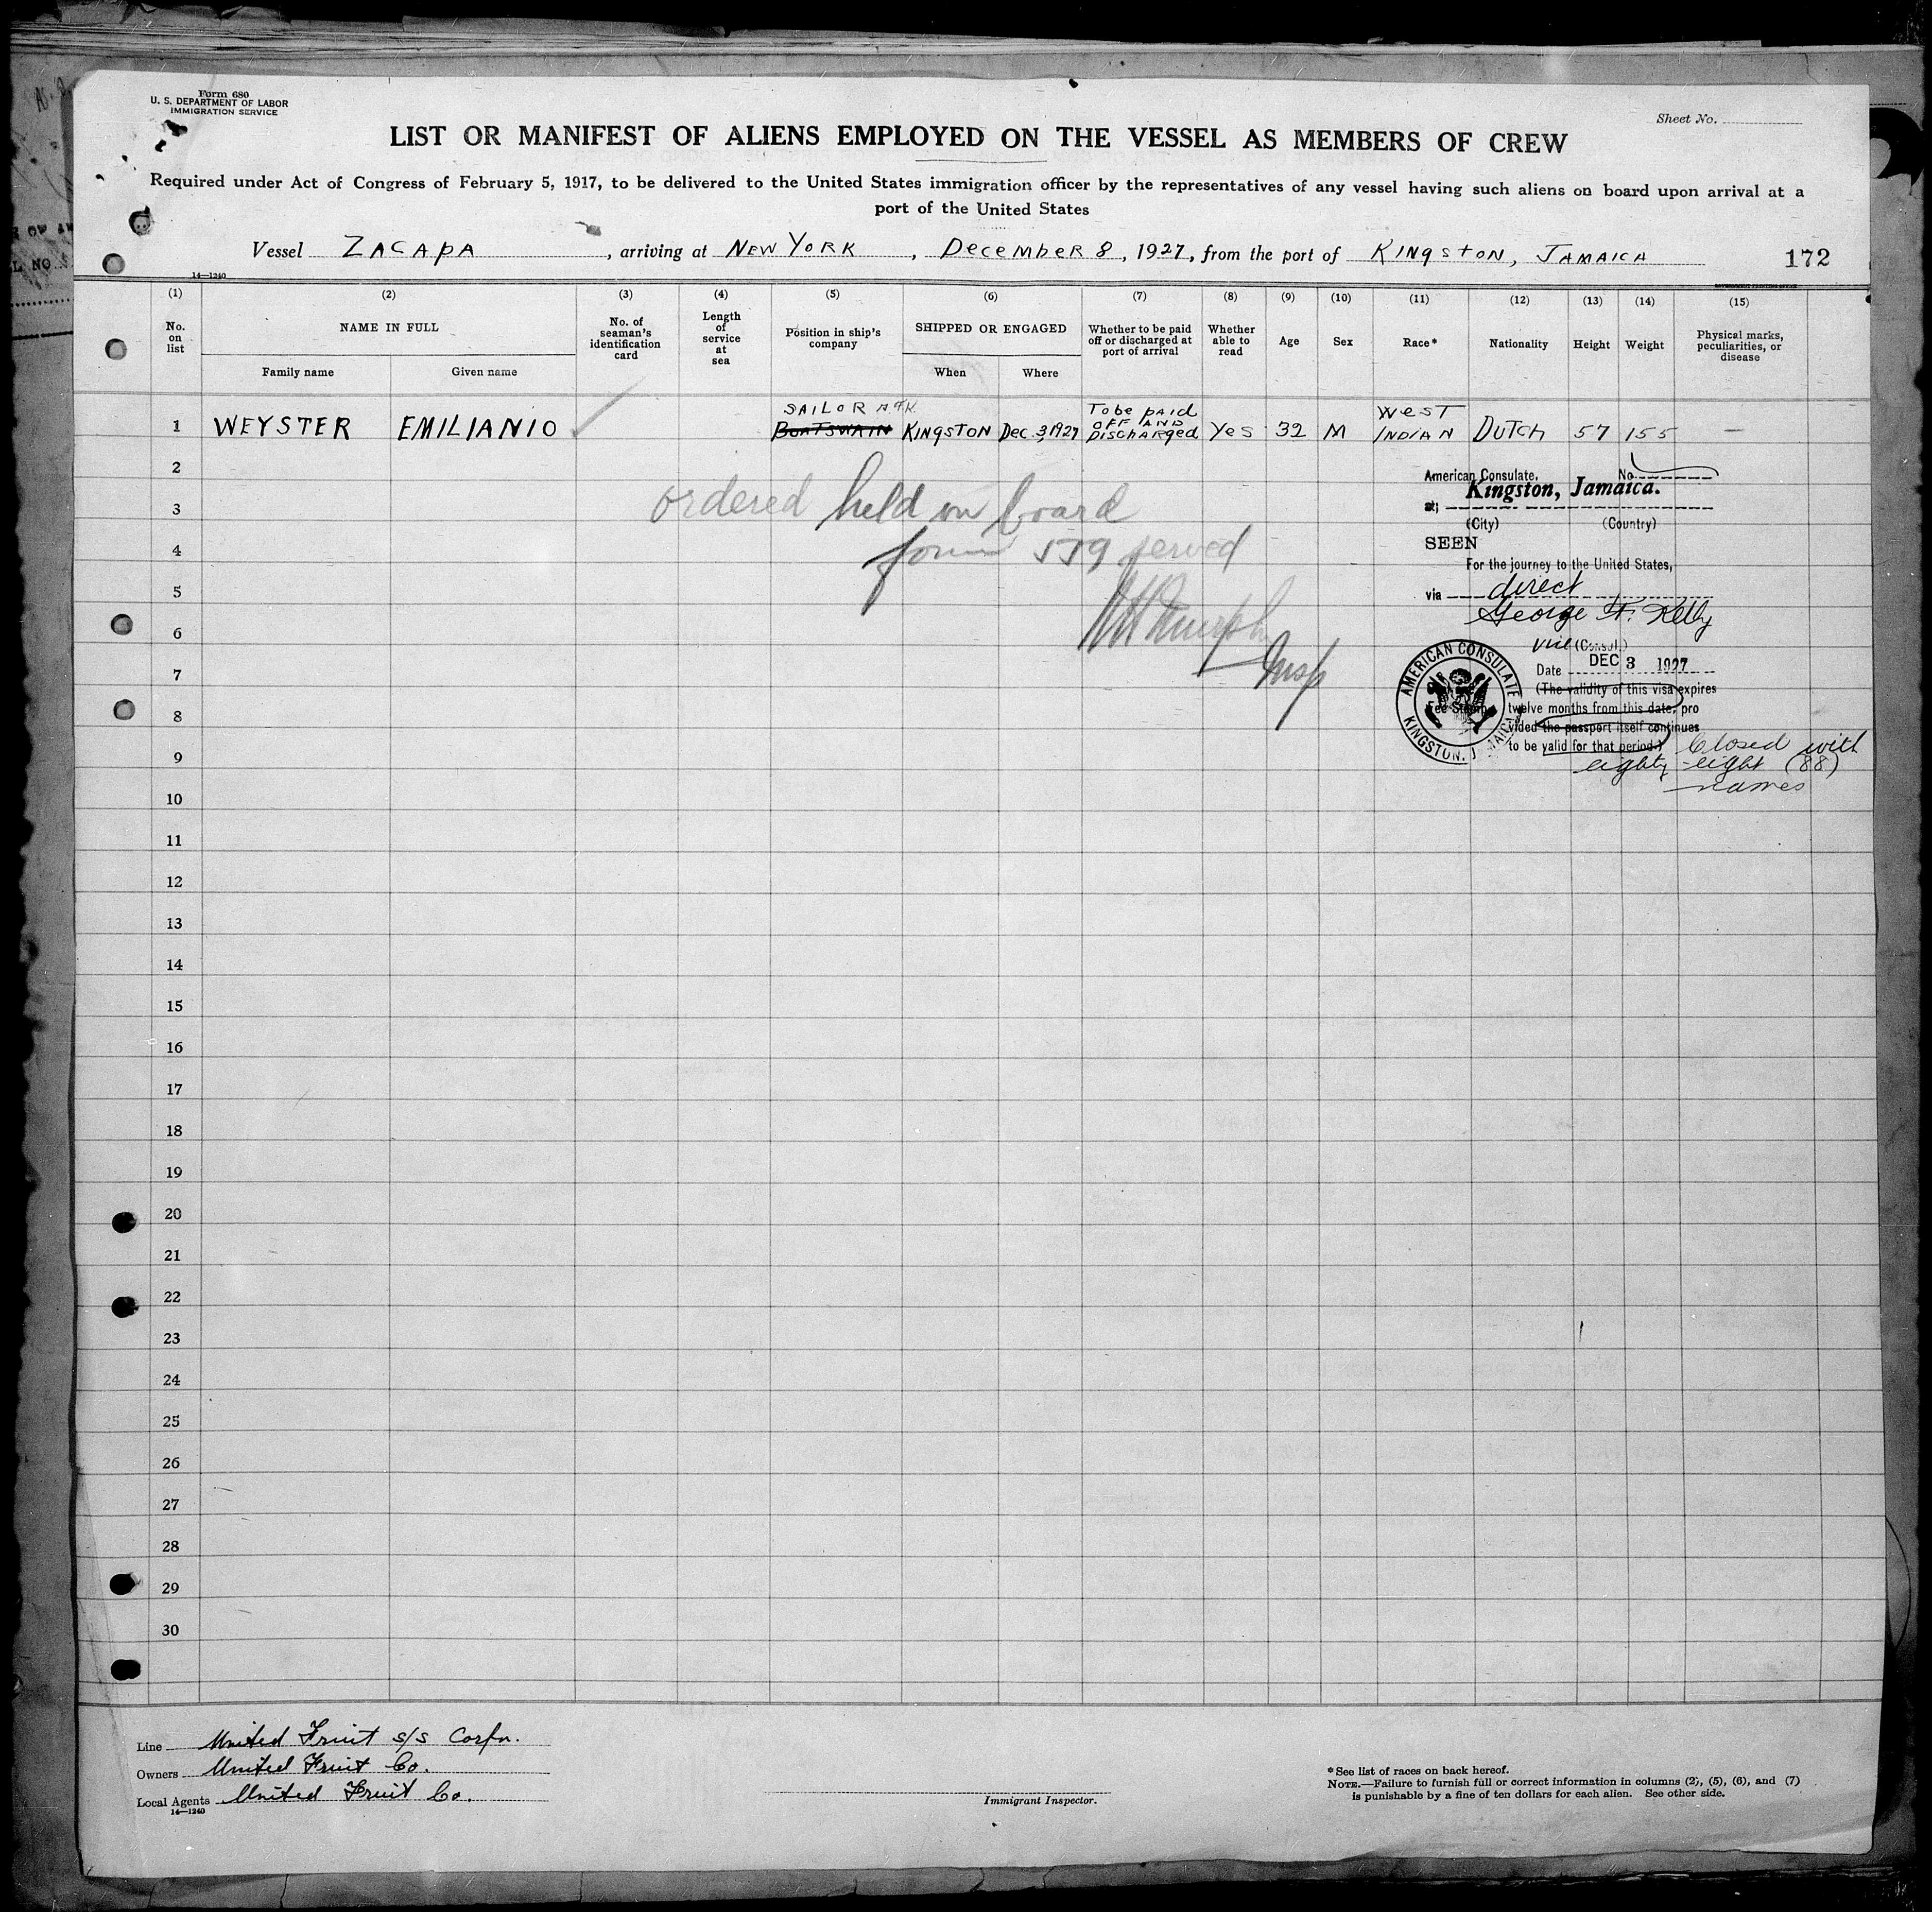 Form 680
U. S. DEPARTMENT OF LABOR
IMMIGRATION SERVICE
Sheet No.
LIST OR MANIFEST OF ALIENS EMPLOYED ON THE VESSEL AS MEMBERS OF CREW
Required under Act of Congress of February 5, 1917, to be delivered to the United States immigration officer by the representatives of any vessel having such aliens on board upon arrival at a
port of the United States
Vessel ZACAPA, arriving at NEW YORK, DECEMBER 8, 1927, from the port of KINGSTON, JAMAICA
172
14—1240
(1) (2) (3) (4) (5) (6) (7) (8) (9) (10) (11) (12) (13) (14) (15)
No. on list
NAME IN FULL
Family name
Given name
No. of seaman's identification card
Length of service at sea
Position in ship's company
SHIPPED OR ENGAGED
When
Where
Whether to be paid off or discharged at port of arrival
Whether able to read
Age
Sex
Race*
Nationality
Height
Weight
Physical marks, peculiarities, or disease
SAILOR To be PAID WEST
1 WEYSTER EMILIANIO BOATSWAIN KINGSTON Dec. 3, 1927 OFF AND DISCHARGED Yes 32 M INDIAN DUTCH 57 155 —
2
3
4
5
6
7
8
9
10
11
12
13
14
15
16
17
18
19
20
21
22
23
24
25
26
27
28
29
30
ordered held on board
form 579 served
Insp
American Consulate, No.
Kingston, Jamaica.
at;
(City) (Country)
SEEN
For the journey to the United States,
via direct
George F. Kelly
Vice (Consul.)
Date DEC 3 1927
(The validity of this visa expires
twelve months from this date, pro
vided the passport itself continues
to be valid for that period.)
AMERICAN CONSULATE
KINGSTON, JAMAICA
Fee Stamp
Closed with
eighty-eight (88)
names
Line United Fruit s/s Corpn.
Owners United Fruit Co.
Local Agents United Fruit Co.
14—1240
Immigrant Inspector.
* See list of races on back hereof.
NOTE.—Failure to furnish full or correct information in columns (2), (5), (6), and (7)
is punishable by a fine of ten dollars for each alien. See other side.